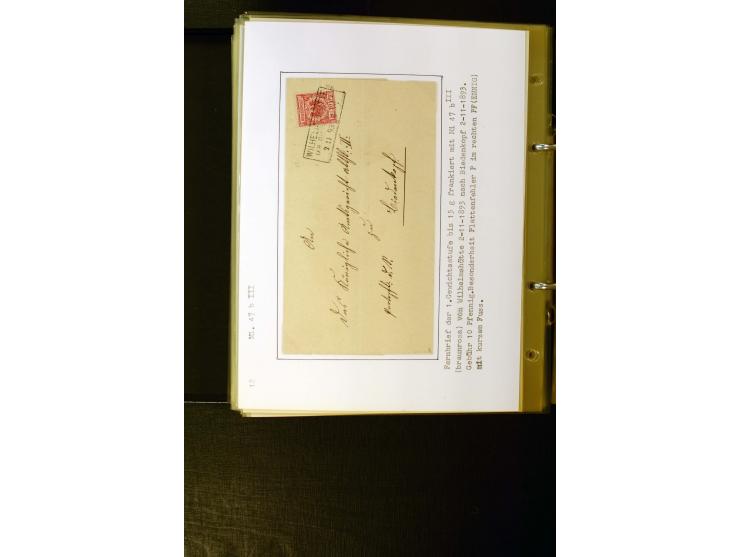 12    MI. 47 b III
WILHELMSHÜTTE
2 11 93
An
Das Königliche Amtsgericht
zu
Biedenkopf
Fernbrief der 1.Gewichtsstufe bis 15 g frankiert mit Mi 47 b III
(braunrosa) von Wilhelmshütte 2-11-1893 nach Biedenkopf 2-11-1893.
Gebühr 10 Pfennig.Besonderheit Plattenfehler F im rechten PF(ENNIG)
mit kurzem Fuss.